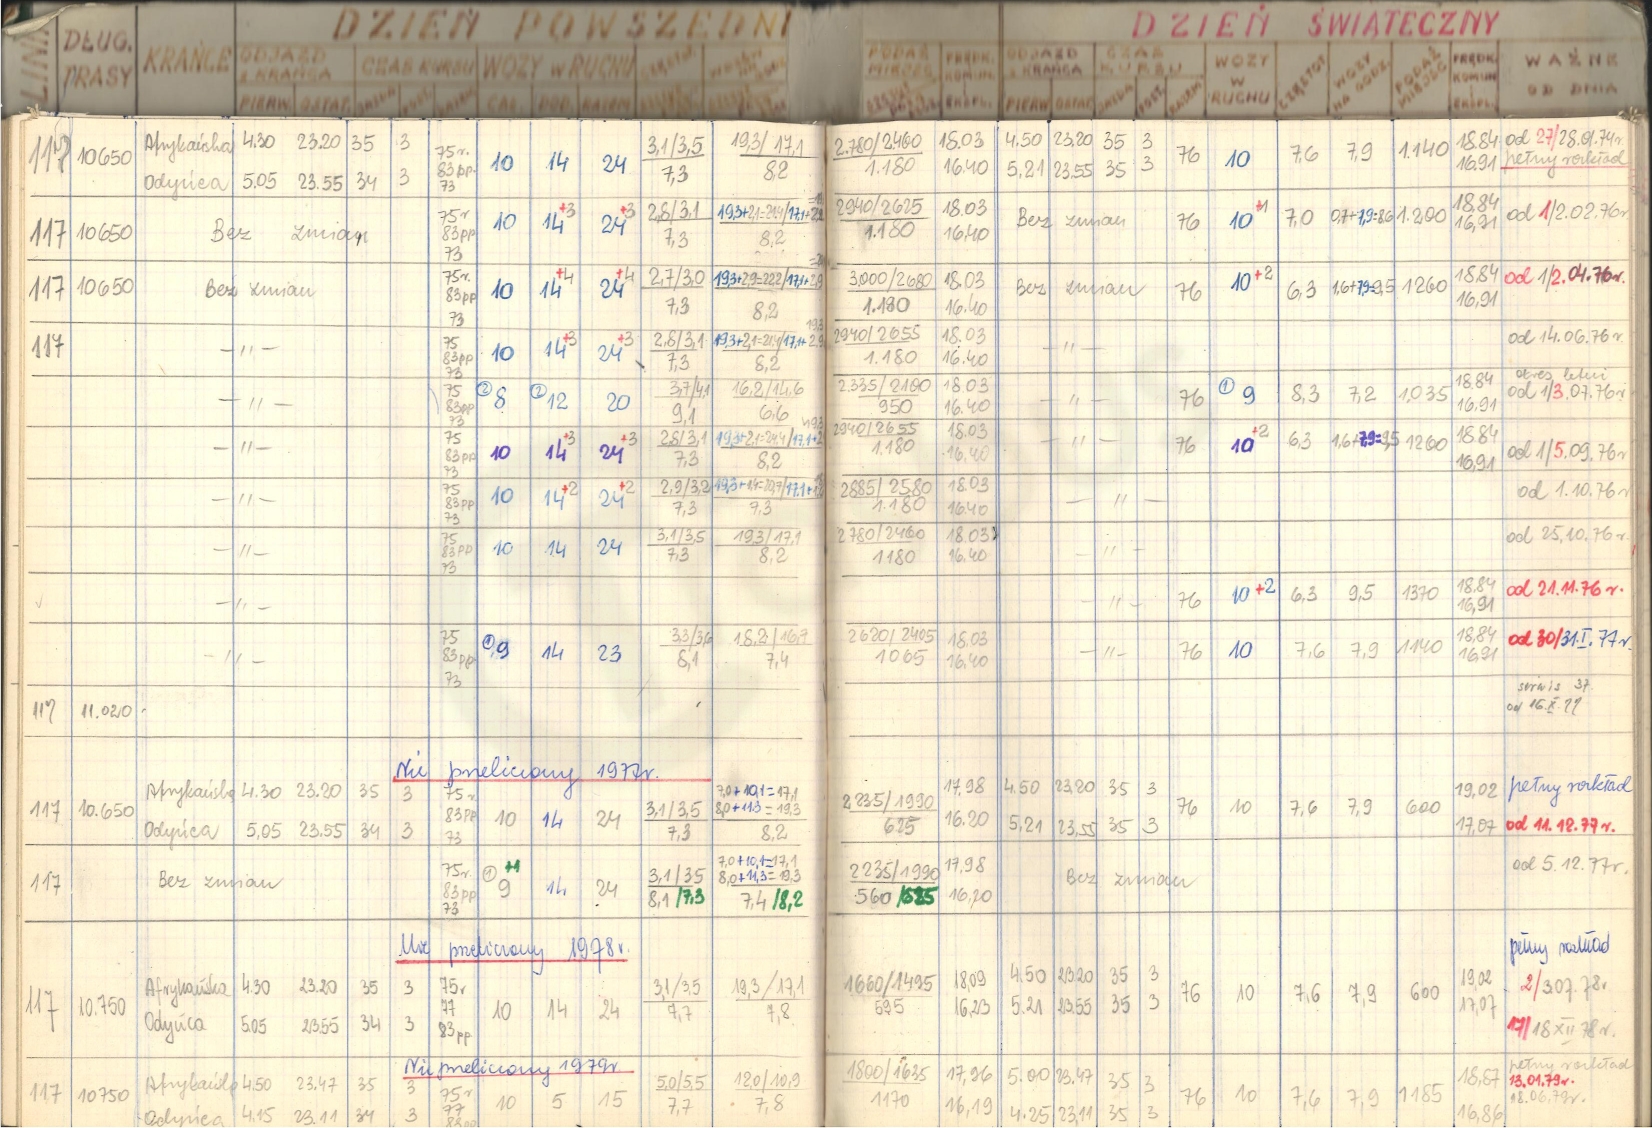 DZIEŃ POWSZEDNI DZIEŃ ŚWIĄTECZNY
LINIA DŁUG. TRASY KRAŃCE ODJAZD Z KRAŃCA CZAS KURSU WOZY W RUCHU PODAŻ MIEJSC PRĘDK. KOMUN. EKSPL. ODJAZD Z KRAŃCA CZAS KURSU WOZY W RUCHU CZĘSTOT. WOZY NA GODZ. PODAŻ MIEJSC PRĘDK. KOMUN. EKSPL. WAŻNE OD DNIA
PIERW. OSTAT. JAZDA POST. RAZEM CAŁ. DOD. RAZEM PIERW. OSTAT. JAZDA POST. RAZEM
117 10650 Afrykańska 4.30 23.20 35 3 75r. 83pp. 73 10 14 24 3,1/3,5 19,3/17,1 2.780/2460 18.03 4.50 23.20 35 3 76 10 7,6 7,9 1.140 18.84 od 27/28.01.74r
Odyńca 5.05 23.55 34 3 7,3 8,2 1.180 16.40 5,21 23.55 35 3 16,91 pełny rozkład
117 10650 Bez zmian 75r 83pp 73 10 14+3 24+3 2,8/3,1 19,3+2,1=21,4/17,1+ 2940/2625 18.03 Bez zmian 76 10+1 7,0 0,7+7,9=8,6 1.200 18.84 od 1/2.02.76r
7,3 8,2 1.180 16.40 16,91
117 10650 Bez zmian 75r. 83pp 73 10 14+4 24+4 2,7/3,0 19,3+2,9=22,2/17,1+2,9 3,000/2680 18.03 Bez zmian 76 10+2 6,3 1,6+7,9=9,5 1260 18.84 od 1/2.04.76r.
7,3 8,2 1.180 16.40 16,91
117 -"- 75 83pp 73 10 14+3 24+3 2,8/3,1 19,3+2,1=21,4/17,1+2,9 2940/2655 18.03 -"- od 14.06.76r.
7,3 8,2 1.180 16.40
-"- 75 83pp 73 ② 8 ② 12 20 3,7/4,1 16,2/14,6 2.335/2100 18.03 -"- 76 ① 9 8,3 7,2 1.035 18,84 okres letni od 1/3.07.76r
9,1 6,6 950 16.40 16.91
-"- 75 83pp 73 10 14+3 24+3 2,8/3,1 19,3+2,1=21,4/17,1+2 2940/2655 18.03 -"- 76 10+2 6,3 1,6+7,9=9,5 1260 18.84 od 1/5.09.76r
7,3 8,2 1.180 16.40 16,91
-"- 75 83pp 73 10 14+2 24+2 2,9/3,2 19,3+1,4=20,7/17,1+ 2885/2580 18.03 -"- od 1.10.76r
7,3 7,3 1.180 16.40
-"- 75 83pp 73 10 14 24 3,1/3,5 19,3/17,1 2780/2460 18.03 -"- od 25,10.76r
7,3 8,2 1180 16.40
-"- -"- 76 10+2 6,3 9,5 1370 18,84 16,91 od 21.11.76r.
-"- 75 83pp 73 ① 9 14 23 3,3/3,6 18,2/16,7 2620/2405 18.03 -"- 76 10 7,6 7,9 1140 18,84 od 30/31.I.77r.
8,1 7,4 1065 16.40 16,91
117 11.020 serwis 37. od 16.X.77
Nie przeliczony 1977r.
117 10.650 Afrykańska 4.30 23.20 35 3 75r 83pp 73 10 14 24 3,1/3,5 7,0+10,1=17,1 8,0+11,3=19,3 2235/1990 17,98 4.50 23,20 35 3 76 10 7,6 7,9 600 19,02 pełny rozkład
Odyńca 5,05 23.55 34 3 7,3 8,2 625 16.20 5,21 23,55 35 3 17,07 od 11.12.77r.
117 Bez zmian 75r. 83pp 73 ① 9+1 14 24 3,1/3,5 7,0+10,1=17,1 8,0+11,3=19,3 2235/1990 17,98 Bez zmian od 5.12.77r.
8,1/7,3 7,4/8,2 560/625 16,20
Nie przeliczony 1978r.
117 10.750 Afrykańska 4.30 23.20 35 3 75r 77 83pp 10 14 24 3,1/3,5 19,3/17,1 1660/1495 18,09 4.50 23.20 35 3 76 10 7,6 7,9 600 19,02 pełny rozkład 2/3.07.78r
Odyńca 5.05 23.55 34 3 7,7 7,8 16,23 5.21 23.55 35 3 17,07 17/18 XII 78r.
Nie przeliczony 1979r
117 10750 Afrykańska 4.50 23.47 35 3 75r 77 83pp 10 5 15 5,0/5,5 12,0/10,9 1800/1635 17,96 5.00 23.47 35 3 76 10 7,6 7,9 1185 18,87 pełny rozkład 13.01.79r.
Odyńca 4.15 23.11 34 3 7,7 7,8 1170 16,19 4.25 23,11 35 3 16,86 18.06.79r.